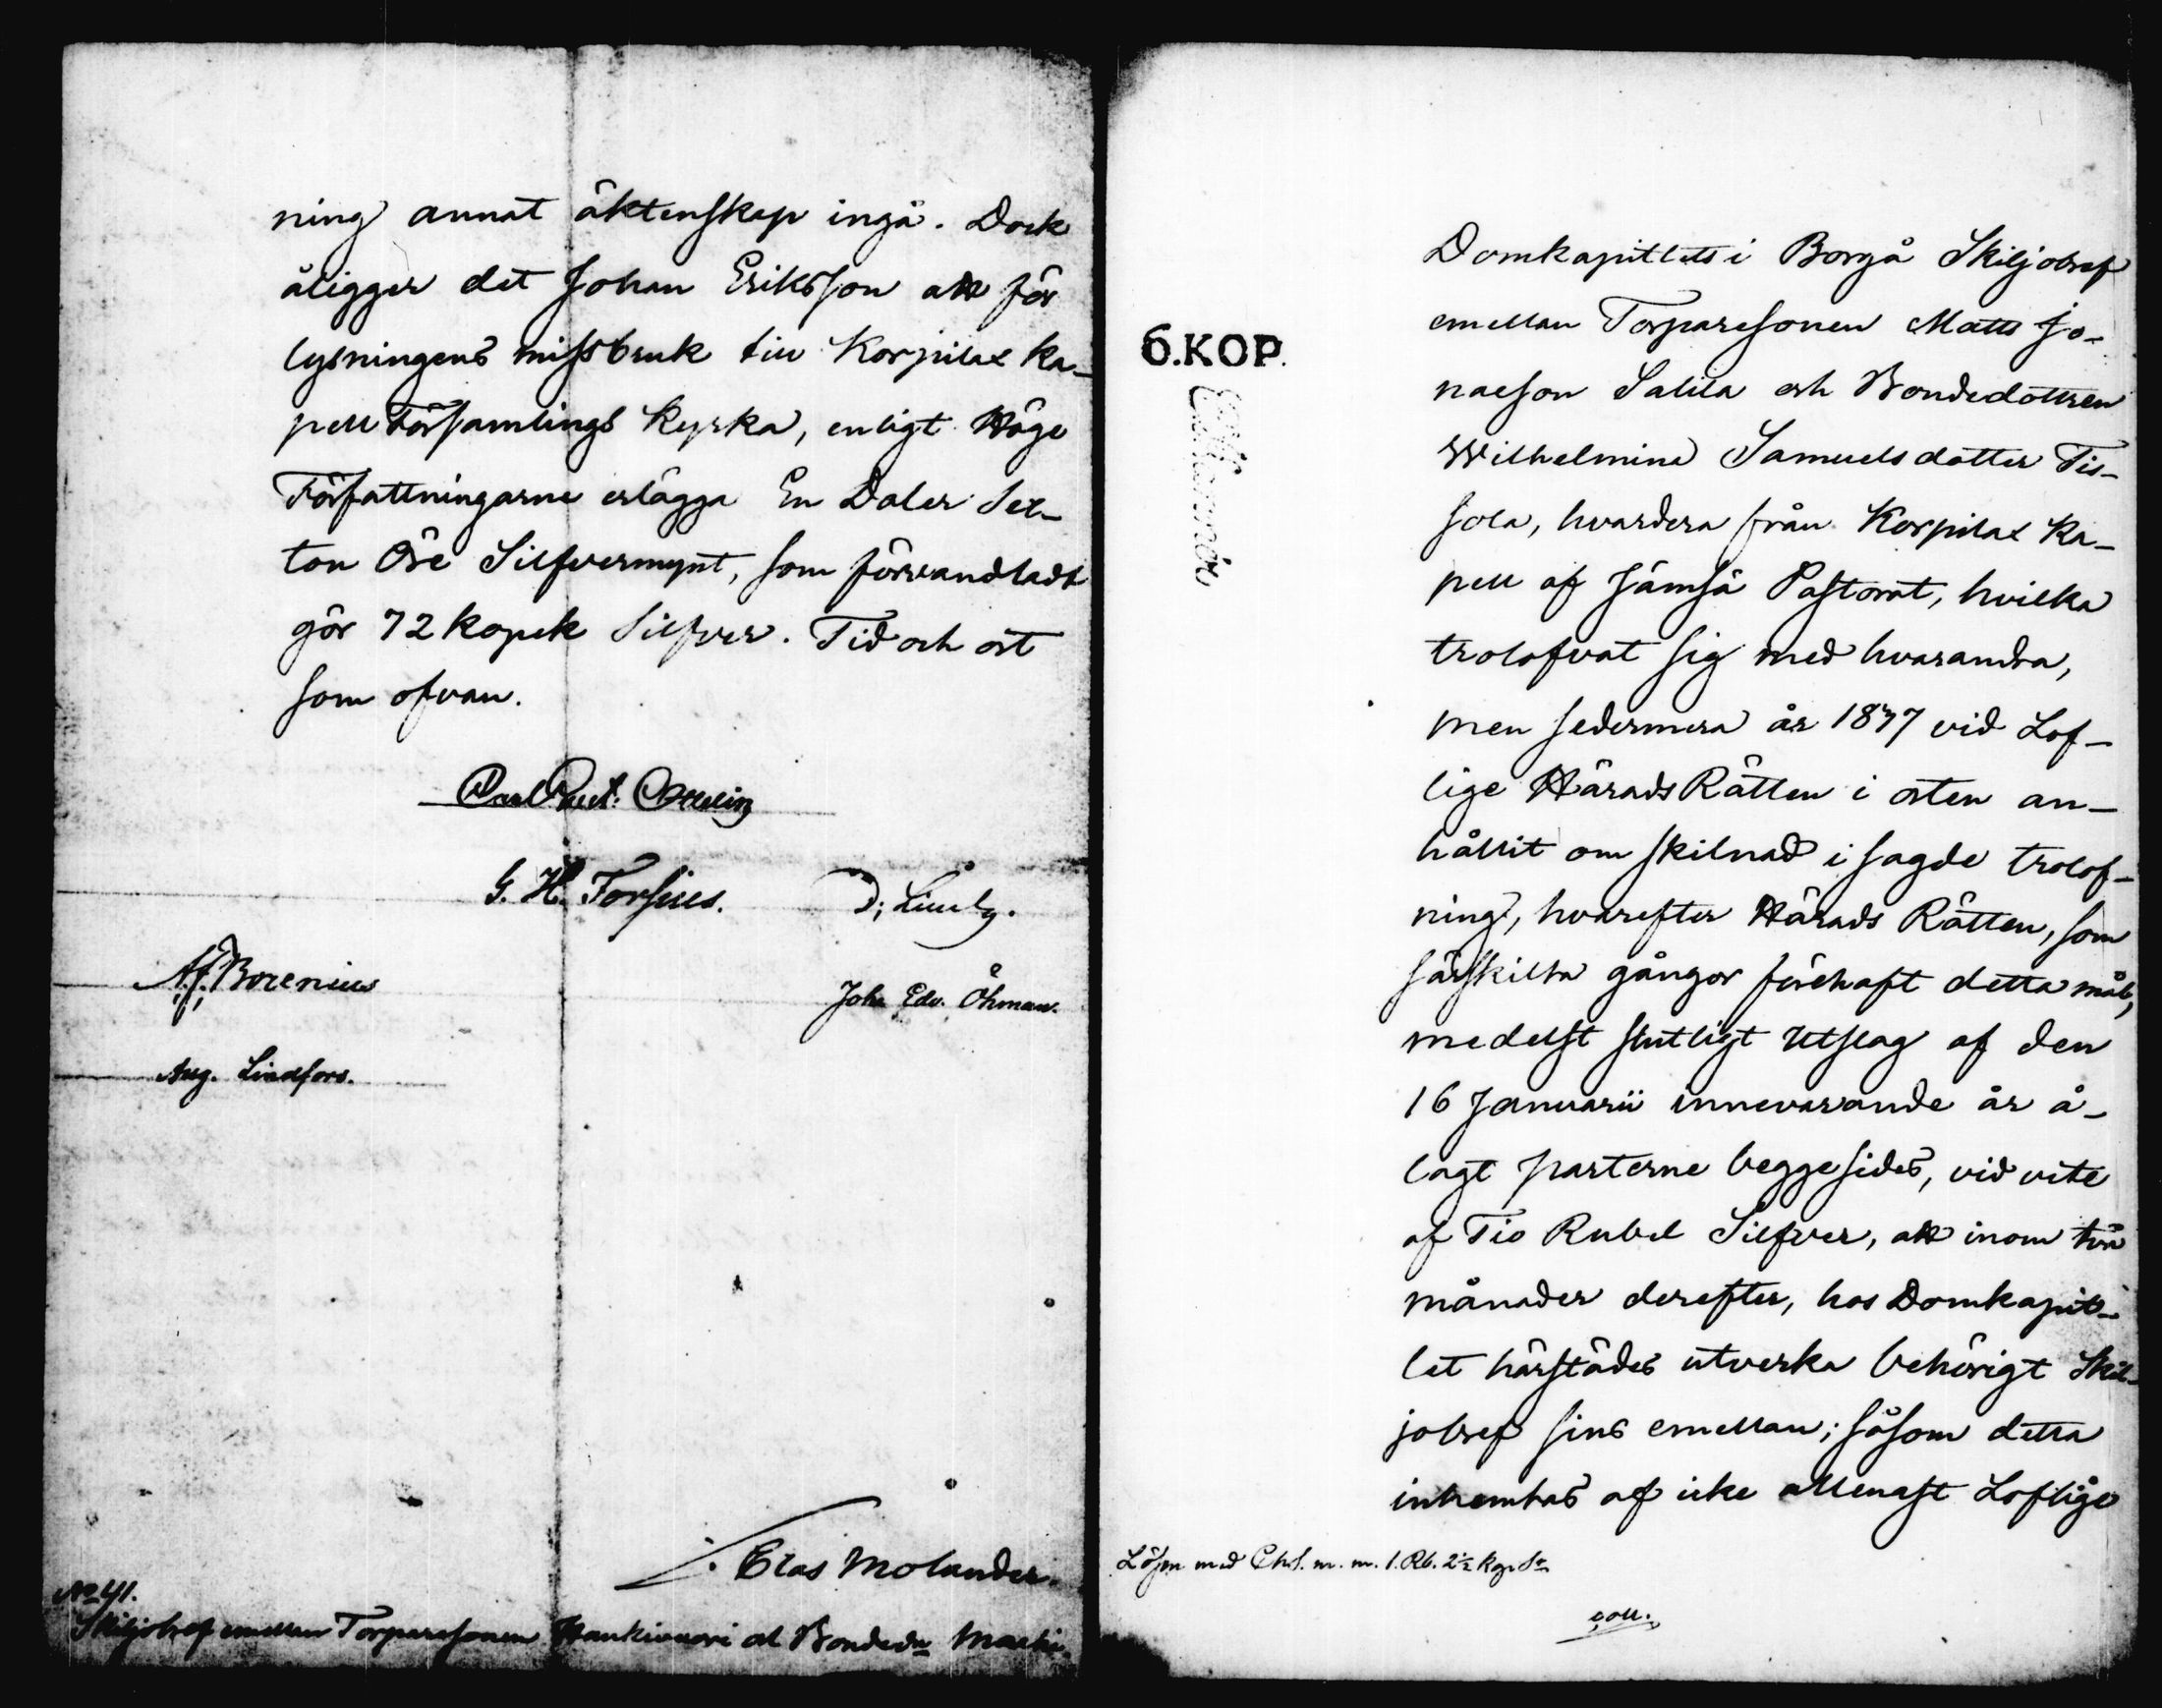 ning annat äktenskap ingå. Dock
åligger det Johan Eriksson att för
lysningens missbruk till Korpilax Ka-
pell Församlings Kyrka, enligt Höge
Författningarne erlägga En Daler Sex-
ton Öre Silfvermynt, som förvandladt
gör 72 kopek Silfver. Tid och ort
som ofvan.
G. H. Forsius.
Borenius
Joh. Edv. Öhman.
Aug. Lindfors.
Clas Molander.
No 41.
Skiljobref emellan Torparesonen Hankivuori och Bondedn
6.KOP.
Domkapitlets i Borgå Skiljobref
emellan Torparesonen Matts Jo-
naeson Salila och Bondedottren
Wilhelmina Samuelsdotter Tis-
sola, hvardera från Korpilax Ka-
pell af Jämsä Pastorat, hvilka
trolofvat sig med hvarandra,
men sedermera år 1847 vid Lof-
lige HäradsRätten i orten an-
hållit om skilnad i sagde trolof-
ning, hvarefter Härads Rätten, som
särskilta gångor förehaft detta mål,
medelst slutligt Utslag af den
16 Januarii innevarande år å-
lagt parterne beggesides, vid vite
af Tio Rubel Silfver, att inom två
månader derefter, hos Domkapit-
let härstädes utverka behörigt Skil-
jobref sins emellan; såsom detta
inhemtas af icke allenast Loflige
Lösen med Chs. m. m. 1. Rb. 2½ kop. Sr
coll.